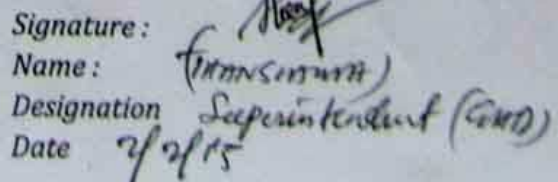 Signature :
Name :
Designation Superintendent (GMD)
Date 2/2/15